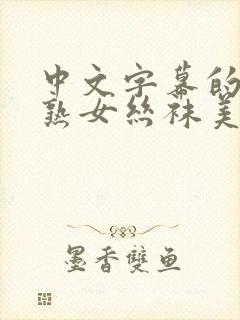 中文字幕的
熟女丝袜美
墨香雙鱼